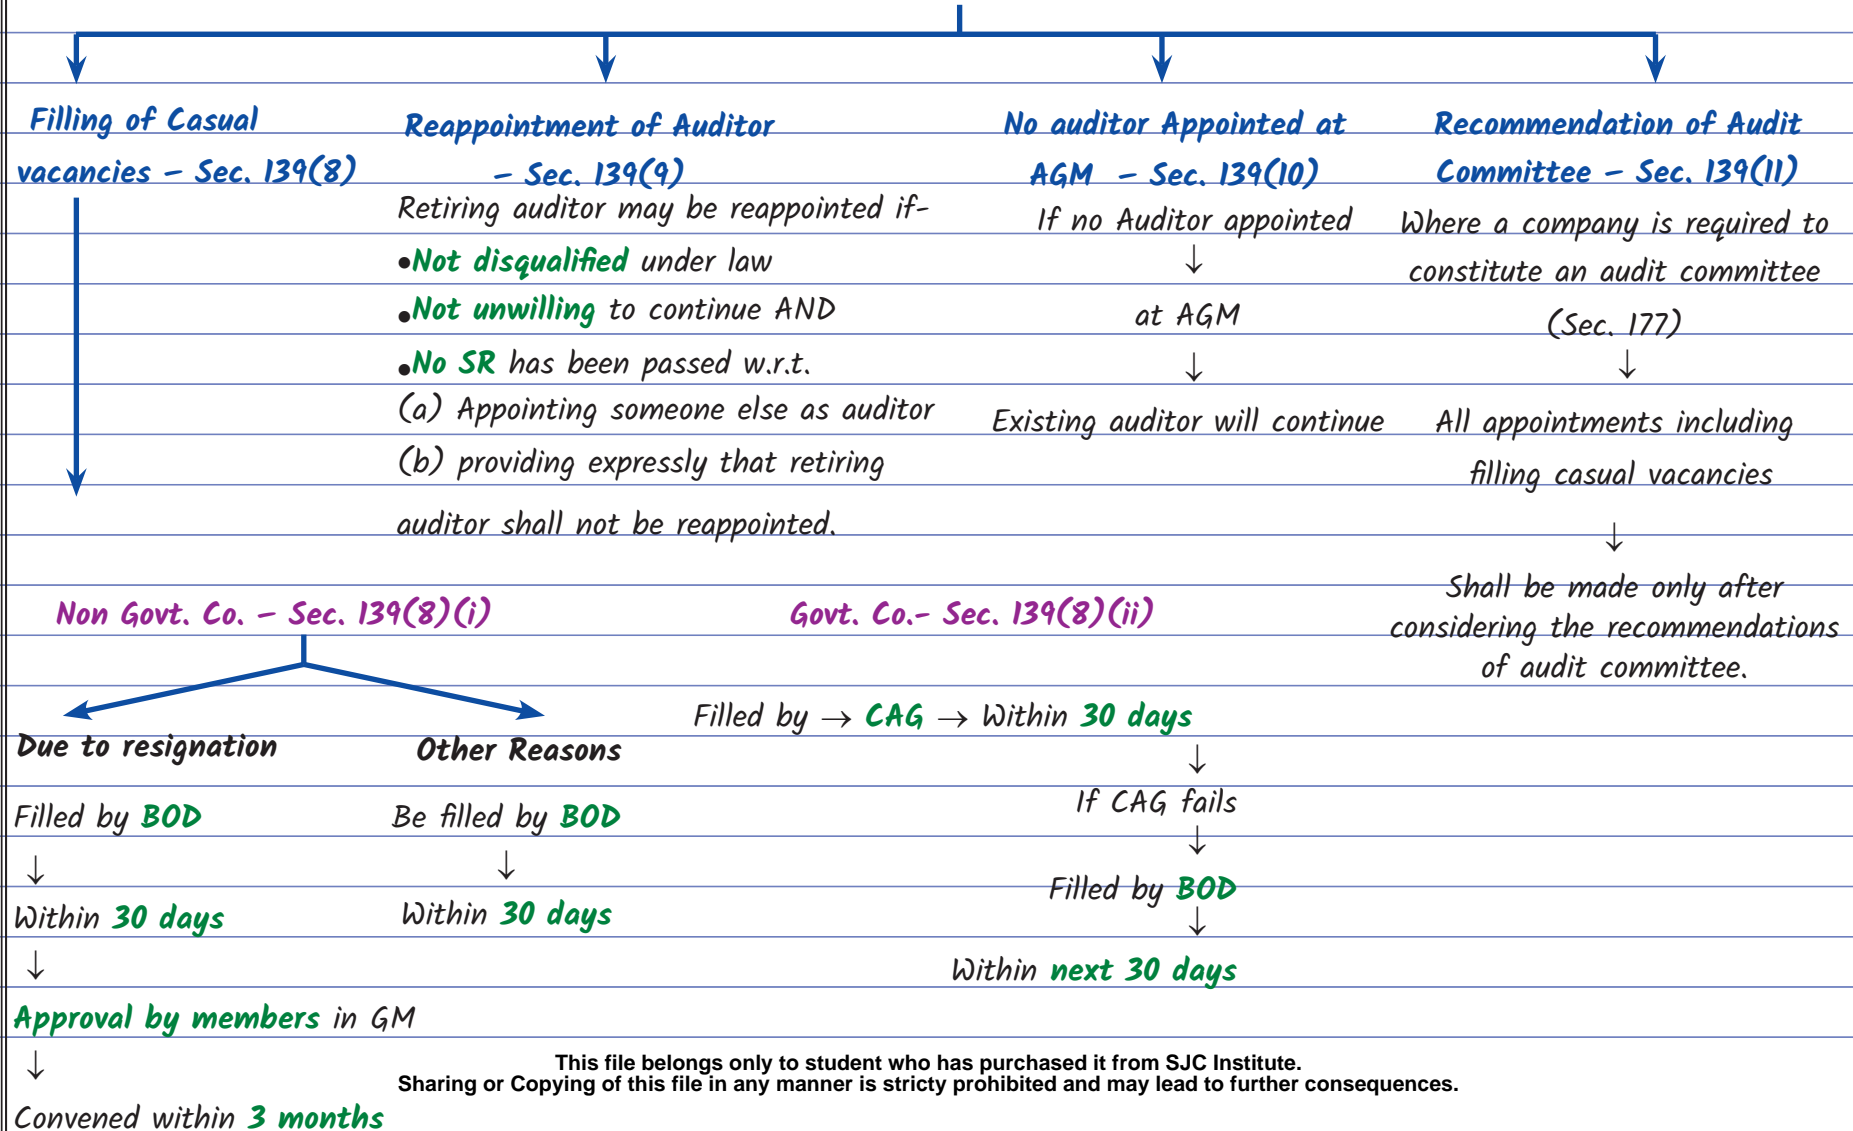 Filling of Casual
vacancies – Sec. 139(8)
Reappointment of Auditor
– Sec. 139(9)
Retiring auditor may be reappointed if-
•Not disqualified under law
•Not unwilling to continue AND
•No SR has been passed w.r.t.
(a) Appointing someone else as auditor
(b) providing expressly that retiring
auditor shall not be reappointed.
No auditor Appointed at
AGM – Sec. 139(10)
If no Auditor appointed
↓
at AGM
↓
Existing auditor will continue
Recommendation of Audit
Committee – Sec. 139(11)
Where a company is required to
constitute an audit committee
(Sec. 177)
↓
All appointments including
filling casual vacancies
↓
Shall be made only after
considering the recommendations
of audit committee.
Non Govt. Co. – Sec. 139(8)(i)
Due to resignation
Filled by BOD
↓
Within 30 days
↓
Approval by members in GM
↓
Convened within 3 months
Other Reasons
Be filled by BOD
↓
Within 30 days
Govt. Co.- Sec. 139(8)(ii)
Filled by → CAG → Within 30 days
↓
If CAG fails
↓
Filled by BOD
↓
Within next 30 days
This file belongs only to student who has purchased it from SJC Institute.
Sharing or Copying of this file in any manner is stricty prohibited and may lead to further consequences.